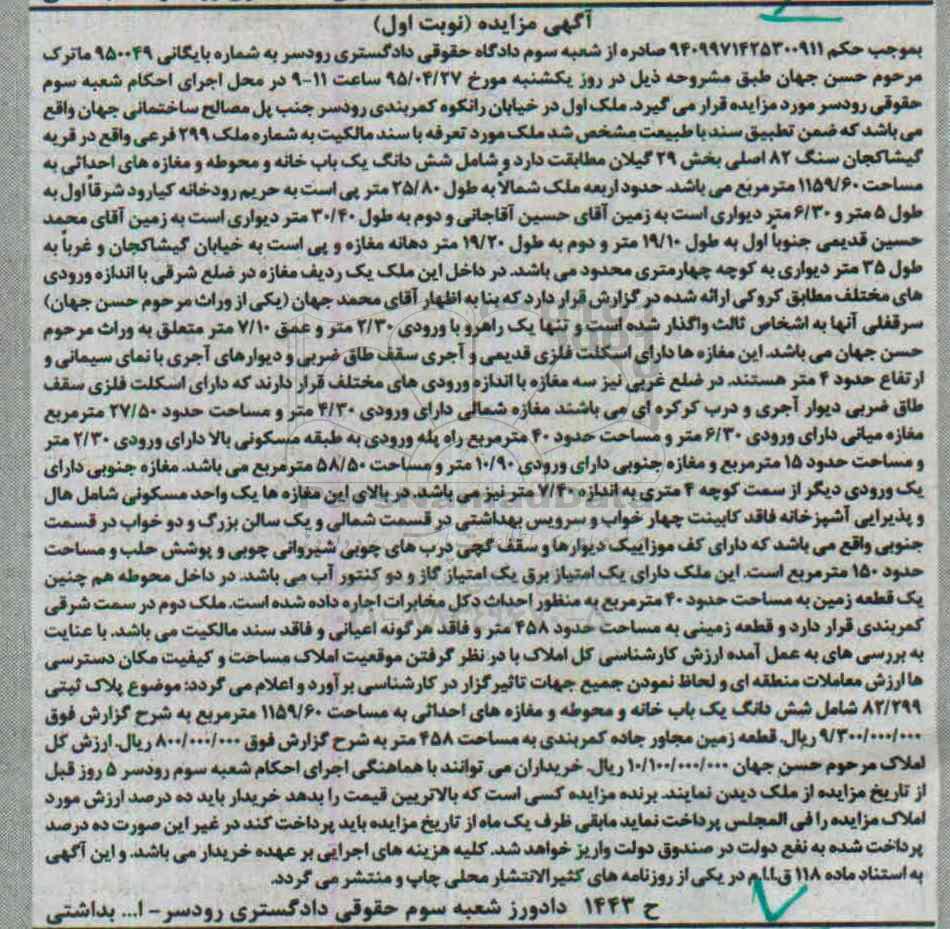 آگهی مزایده (نوبت اول)
بموجب حکم ۹۴۰۹۹۷۱۴۲۵۳۰۰۹۱۱ صادره از شعبه سوم دادگاه حقوقی دادگستری رودسر به شماره بایگانی ۹۵۰۰۴۹ ماترک
مرحوم حسن جهان طبق مشروحه ذیل در روز یکشنبه مورخ ۹۵/۰۴/۲۷ ساعت ۱۱-۹ در محل اجرای احکام شعبه سوم
حقوقی رودسر مورد مزایده قرار می گیرد. ملک اول در خیابان رانکوه کمربندی رودسر جنب پل مصالح ساختمانی جهان واقع
می باشد که ضمن تطبیق سند با طبیعت مشخص شد ملک مورد تعرفه با سند مالکیت به شماره ملک ۲۹۹ فرعی واقع در قریه
گیشاکجان سنگ ۸۲ اصلی بخش ۲۹ گیلان مطابقت دارد و شامل شش دانگ یک باب خانه و محوطه و مغازه های احداثی به
مساحت ۱۱۵۹/۶۰ مترمربع می باشد. حدود اربعه ملک شمالاً به طول ۲۵/۸۰ متر پی است به حریم رودخانه کیارود شرقاً اول به
طول ۵ متر و ۶/۳۰ متر دیواری است به زمین آقای حسین آقاجانی و دوم به طول ۳۰/۴۰ متر دیواری است به زمین آقای محمد
حسین قدیمی جنوباً اول به طول ۱۹/۱۰ متر و دوم به طول ۱۹/۲۰ متر دهانه مغازه و پی است به خیابان گیشاکجان و غرباً به
طول ۳۵ متر دیواری به کوچه چهارمتری محدود می باشد. در داخل این ملک یک ردیف مغازه در ضلع شرقی با اندازه ورودی
های مختلف مطابق کروکی ارائه شده در گزارش قرار دارد که بنا به اظهار آقای محمد جهان (یکی از وراث مرحوم حسن جهان)
سرقفلی آنها به اشخاص ثالث واگذار شده است و تنها یک راهرو با ورودی ۲/۳۰ متر و عمق ۷/۱۰ متر متعلق به وراث مرحوم
حسن جهان می باشد. این مغازه ها دارای اسکلت فلزی قدیمی و آجری سقف طاق ضربی و دیوارهای آجری با نمای سیمانی و
ارتفاع حدود ۴ متر هستند. در ضلع غربی نیز سه مغازه با اندازه ورودی های مختلف قرار دارند که دارای اسکلت فلزی سقف
طاق ضربی دیوار آجری و درب کرکره ای می باشند مغازه شمالی دارای ورودی ۴/۳۰ متر و مساحت حدود ۲۷/۵۰ مترمربع
مغازه میانی دارای ورودی ۶/۳۰ متر و مساحت حدود ۴۰ مترمربع راه پله ورودی به طبقه مسکونی بالا دارای ورودی ۲/۳۰ متر
و مساحت حدود ۱۵ مترمربع و مغازه جنوبی دارای ورودی ۱۰/۹۰ متر و مساحت ۵۸/۵۰ مترمربع می باشد. مغازه جنوبی دارای
یک ورودی دیگر از سمت کوچه ۴ متری به اندازه ۷/۴۰ متر نیز می باشد. در بالای این مغازه ها یک واحد مسکونی شامل هال
و پذیرایی آشپزخانه فاقد کابینت چهار خواب و سرویس بهداشتی در قسمت شمالی و یک سالن بزرگ و دو خواب در قسمت
جنوبی واقع می باشد که دارای کف موزاییک دیوارها و سقف گچی درب های چوبی شیروانی چوبی و پوشش حلب و مساحت
حدود ۱۵۰ مترمربع است. این ملک دارای یک امتیاز برق یک امتیاز گاز و دو کنتور آب می باشد. در داخل محوطه هم چنین
یک قطعه زمین به مساحت حدود ۴۰ مترمربع به منظور احداث دکل مخابرات اجاره داده شده است. ملک دوم در سمت شرقی
کمربندی قرار دارد و قطعه زمینی به مساحت حدود ۴۵۸ متر و فاقد هرگونه اعیانی و فاقد سند مالکیت می باشد. با عنایت
به بررسی های به عمل آمده ارزش کارشناسی کل املاک با در نظر گرفتن موقعیت املاک مساحت و کیفیت مکان دسترسی
ها ارزش معاملات منطقه ای و لحاظ نمودن جمیع جهات تاثیرگزار در کارشناسی برآورد و اعلام می گردد: موضوع پلاک ثبتی
۸۲/۲۹۹ شامل شش دانگ یک باب خانه و محوطه و مغازه های احداثی به مساحت ۱۱۵۹/۶۰ مترمربع به شرح گزارش فوق
۹/۳۰۰/۰۰۰/۰۰۰ ریال. قطعه زمین مجاور جاده کمربندی به مساحت ۴۵۸ متر به شرح گزارش فوق ۸۰۰/۰۰۰/۰۰۰ ریال. ارزش کل
املاک مرحوم حسن جهان ۱۰/۱۰۰/۰۰۰/۰۰۰ ریال. خریداران می توانند با هماهنگی اجرای احکام شعبه سوم رودسر ۵ روز قبل
از تاریخ مزایده از ملک دیدن نمایند. برنده مزایده کسی است که بالاتریین قیمت را بدهد خریدار باید ده درصد ارزش مورد
املاک مزایده را فی المجلس پرداخت نماید مابقی ظرف یک ماه از تاریخ مزایده باید پرداخت کند در غیر این صورت ده درصد
پرداخت شده به نفع دولت در صندوق دولت واریز خواهد شد. کلیه هزینه های اجرایی بر عهده خریدار می باشد. و این آگهی
به استناد ماده ۱۱۸ ق.ا.ا.م در یکی از روزنامه های کثیرالانتشار محلی چاپ و منتشر می گردد.
ح ۱۴۴۳ دادورز شعبه سوم حقوقی دادگستری رودسر - ا... بداشتی